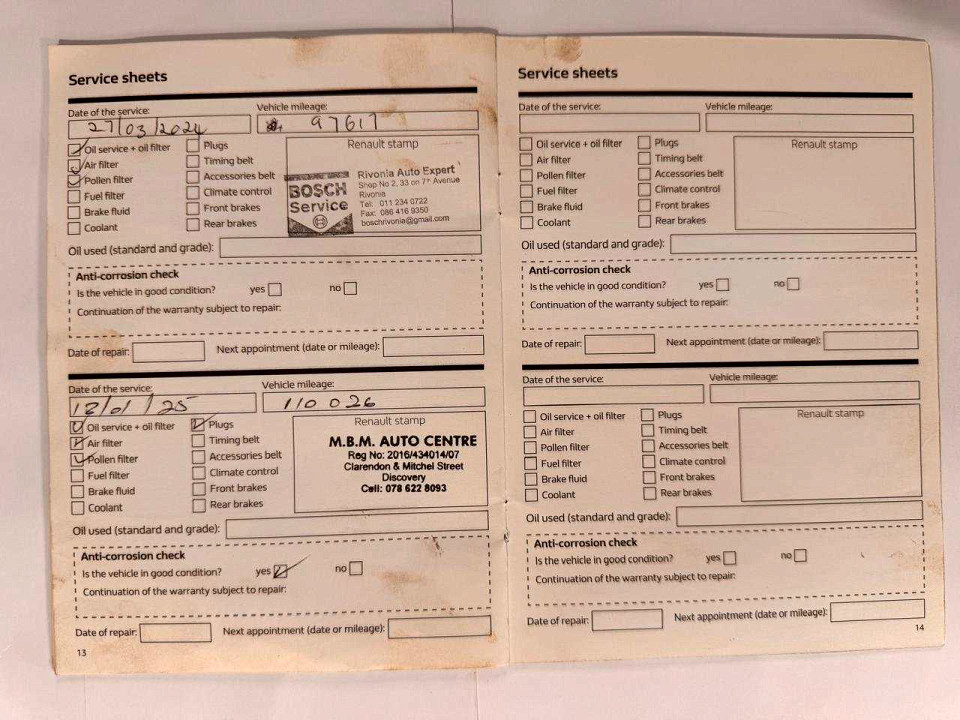 Service sheets
Date of the service: Vehicle mileage:
27/03/2024 97617
Oil service + oil filter Plugs
Air filter Timing belt
Pollen filter Accessories belt
Fuel filter Climate control
Brake fluid Front brakes
Coolant Rear brakes
Renault stamp
BOSCH
Service
Rivonia Auto Expert
Shop No 2, 33 on 7th Avenue
Rivonia
Tel: 011 234 0722
Fax: 086 416 9350
boschrivonia@gmail.com
Oil used (standard and grade):
Anti-corrosion check
Is the vehicle in good condition? yes no
Continuation of the warranty subject to repair:
Date of repair: Next appointment (date or mileage):
Date of the service: Vehicle mileage:
/01/25 110 026
Oil service + oil filter Plugs
Air filter Timing belt
Pollen filter Accessories belt
Fuel filter Climate control
Brake fluid Front brakes
Coolant Rear brakes
Renault stamp
M.B.M. AUTO CENTRE
Reg No: 2016/434014/07
Clarendon & Mitchel Street
Discovery
Cell: 078 622 8093
Oil used (standard and grade):
Anti-corrosion check
Is the vehicle in good condition? yes no
Continuation of the warranty subject to repair:
Date of repair: Next appointment (date or mileage):
13
Service sheets
Date of the service: Vehicle mileage:
Oil service + oil filter Plugs
Air filter Timing belt
Pollen filter Accessories belt
Fuel filter Climate control
Brake fluid Front brakes
Coolant Rear brakes
Renault stamp
Oil used (standard and grade):
Anti-corrosion check
Is the vehicle in good condition? yes no
Continuation of the warranty subject to repair:
Date of repair: Next appointment (date or mileage):
Date of the service: Vehicle mileage:
Oil service + oil filter Plugs
Air filter Timing belt
Pollen filter Accessories belt
Fuel filter Climate control
Brake fluid Front brakes
Coolant Rear brakes
Renault stamp
Oil used (standard and grade):
Anti-corrosion check
Is the vehicle in good condition? yes no
Continuation of the warranty subject to repair:
Date of repair: Next appointment (date or mileage):
14